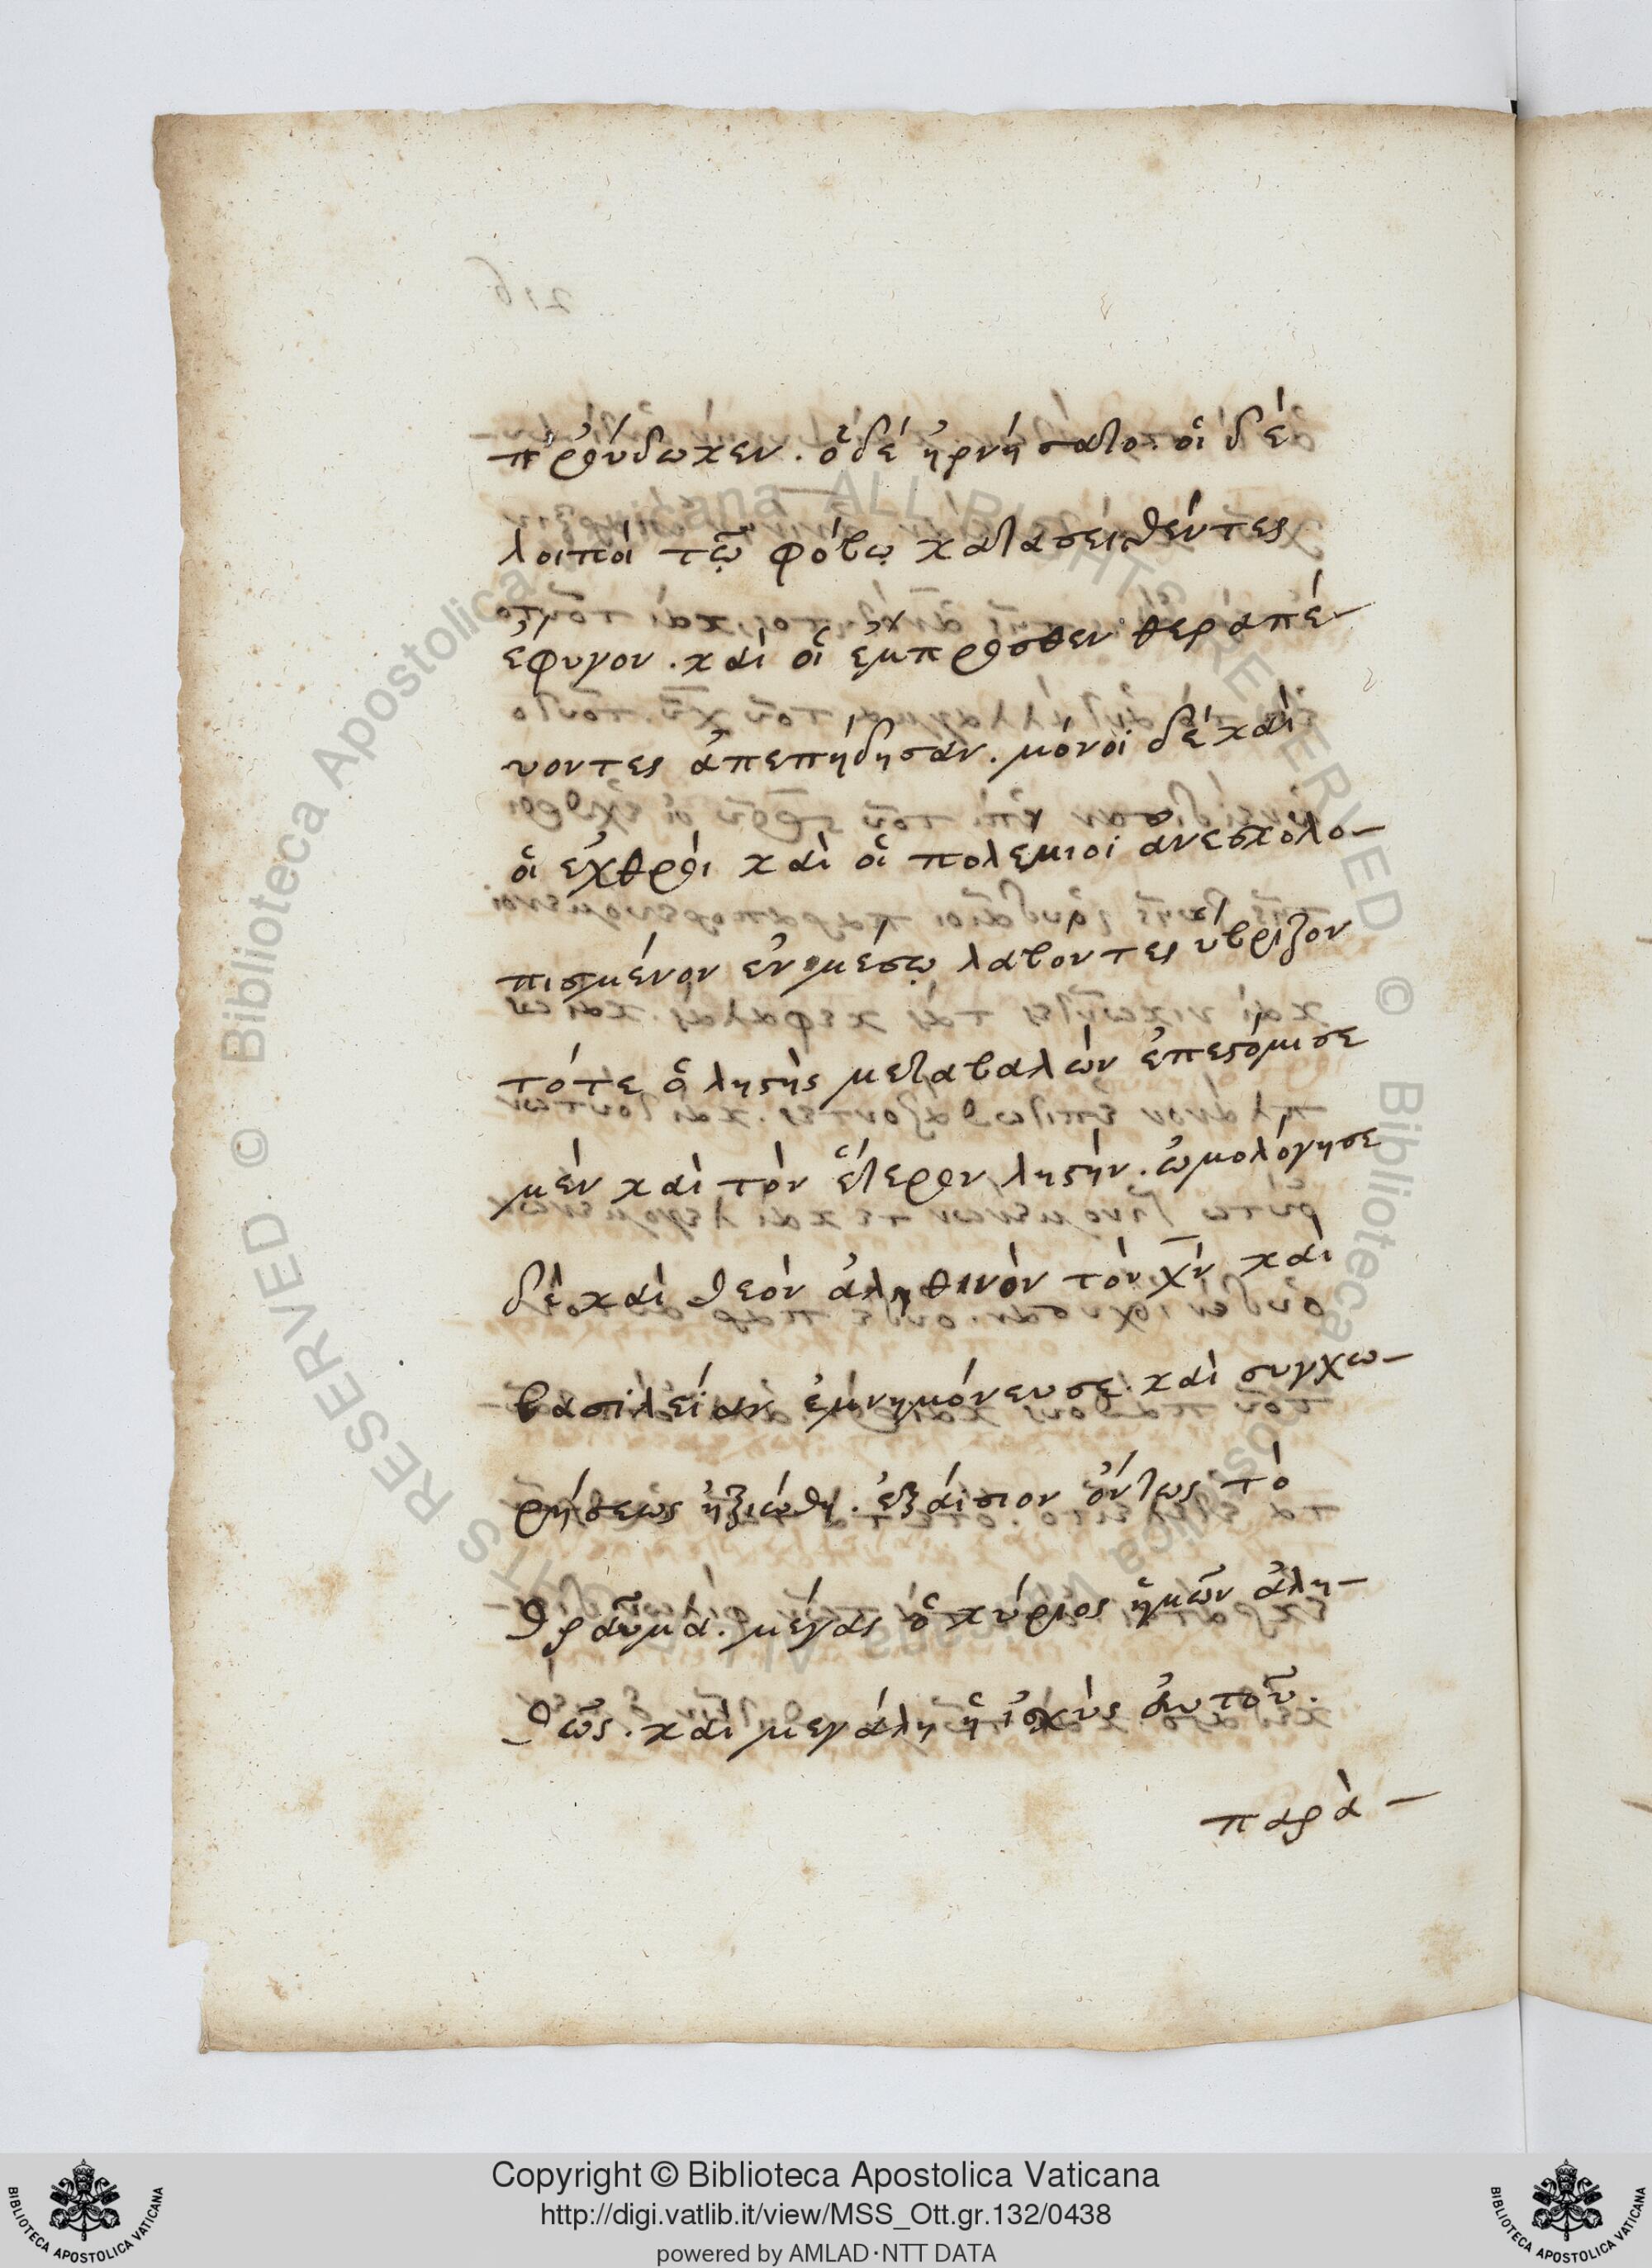 προύδωκεν. ὁ δέ ἠρνήσατο. οἱ δέ
λοιποί τῶ φόβω κατασεισθέντες
ἔφυγον. καὶ οἱ ἔμπροσθεν θεραπέ-
υοντες ἀπεπήδησαν. μόνοι δέ καὶ
οἱ ἐχθροὶ καὶ οἱ πολέμιοι ἀνεσκολο-
πισμένον ἐν μέσω λαβόντες ὕβριζον
τότε ὁ ληστὴς μεταβαλὼν ἐπεστόμισε
μὲν καὶ τὸν ἕτερον ληστὴν. ὡμολόγησε
δὲ καὶ θεὸν ἀληθινὸν τὸν χν καὶ
βασιλείαν ἐμνημόνευσε. καὶ συγχω-
ρήσεως ἠξιώθη. ἐξαίσιον ὄντως τὸ
θραῦμα. μέγας ὁ κύριος ἡμῶν ἀλη-
θῶς. καὶ μεγάλη ἡ ἰσχὺς αὐτοῦ.
παρὰ-
216
Copyright © Biblioteca Apostolica Vaticana
http://digi.vatlib.it/view/MSS_Ott.gr.132/0438
powered by AMLAD·NTT DATA
BIBLIOTECA APOSTOLICA VATICANA
BIBLIOTECA APOSTOLICA VATICANA